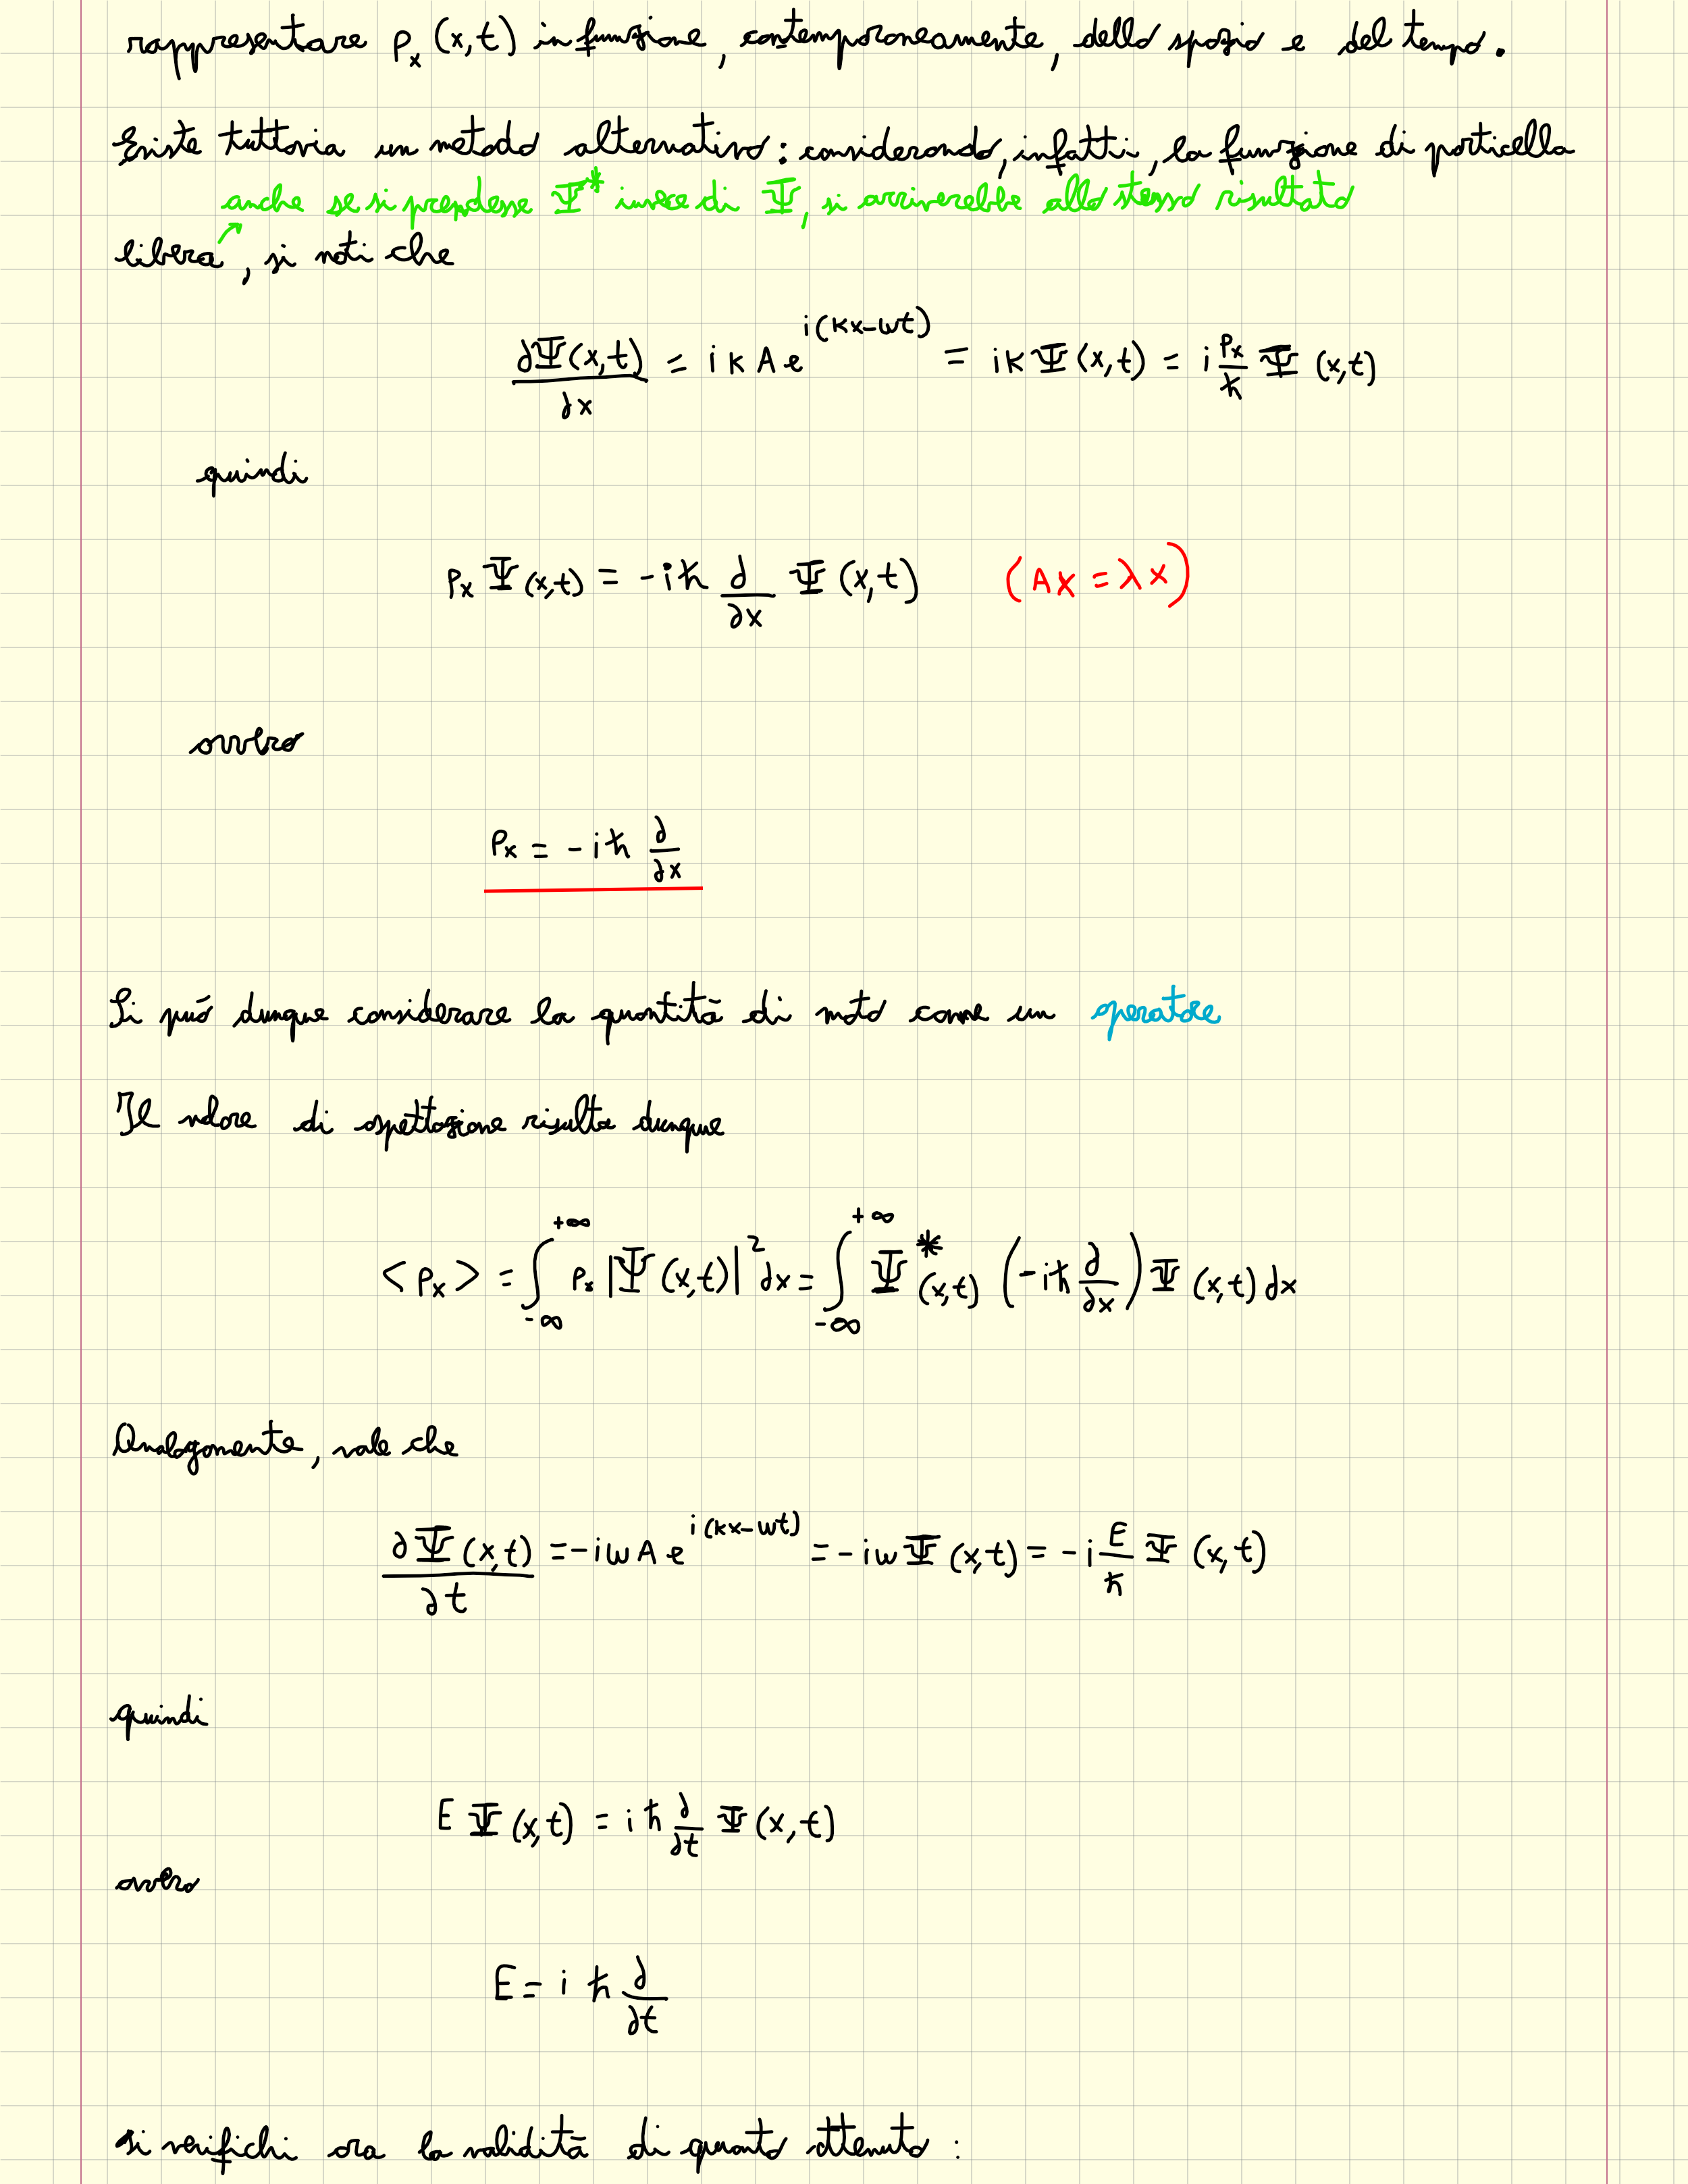 rappresentare Pₓ (x,t) in funzione, contemporaneamente, dello spazio e del tempo.
Esiste tuttavia un metodo alternativo: considerando, infatti, la funzione di particella
anche se si prendesse Ψ* invece di Ψ, si arriverebbe allo stesso risultato
libera, si noti che
∂Ψ(x,t)/∂x = i k A e^{i(kx-ωt)} = i k Ψ(x,t) = i Pₓ/ħ Ψ(x,t)
quindi
Pₓ Ψ(x,t) = -iħ ∂/∂x Ψ(x,t) (Ax = λx)
ovvero
Pₓ = -iħ ∂/∂x
Si può dunque considerare la quantità di moto come un operatore
Il valore di aspettazione risulta dunque
<Pₓ> = ∫_{-∞}^{+∞} Pₓ |Ψ(x,t)|² dx = ∫_{-∞}^{+∞} Ψ*(x,t) (-iħ ∂/∂x) Ψ(x,t) dx
Analogamente, vale che
∂Ψ(x,t)/∂t = -iω A e^{i(kx-ωt)} = -iω Ψ(x,t) = -i E/ħ Ψ(x,t)
quindi
E Ψ(x,t) = iħ ∂/∂t Ψ(x,t)
ovvero
E = iħ ∂/∂t
si verifichi ora la validità di quanto ottenuto: